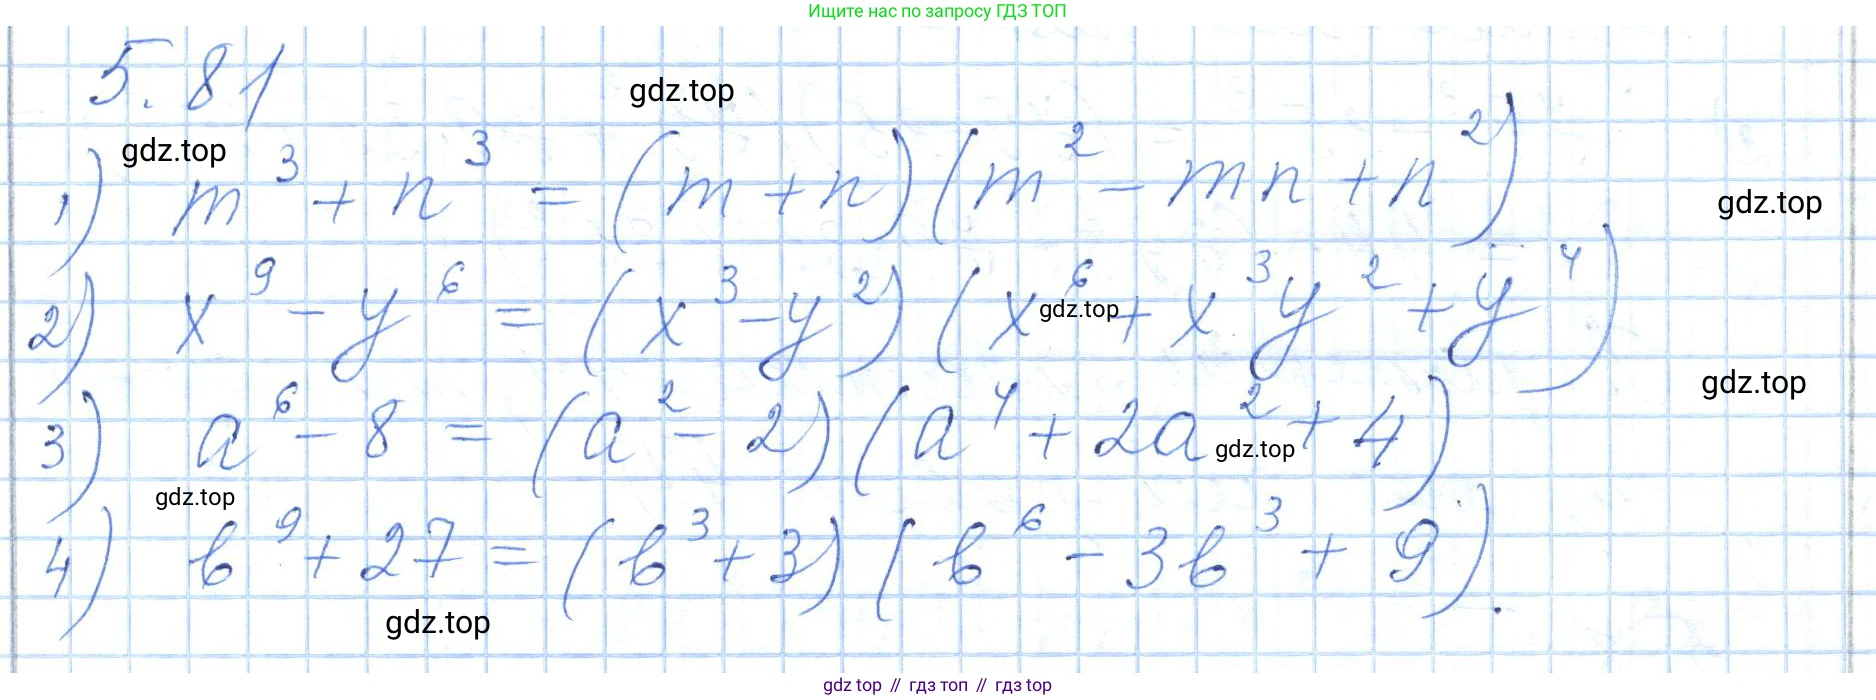 Ищите нас по запросу ГДЗ ТОП
5.81
gdz.top
gdz.top
1) m³ + n³ = (m + n)(m² - mn + n²)
gdz.top
2) x⁹ - y⁶ = (x³ - y²)(x⁶ + x³y² + y⁴)
gdz.top
gdz.top
3) a⁶ - 8 = (a² - 2)(a⁴ + 2a² + 4)
gdz.top
gdz.top
4) в⁹ + 27 = (в³ + 3)(в⁶ - 3в³ + 9).
gdz.top
gdz.top // гдз топ // гдз top